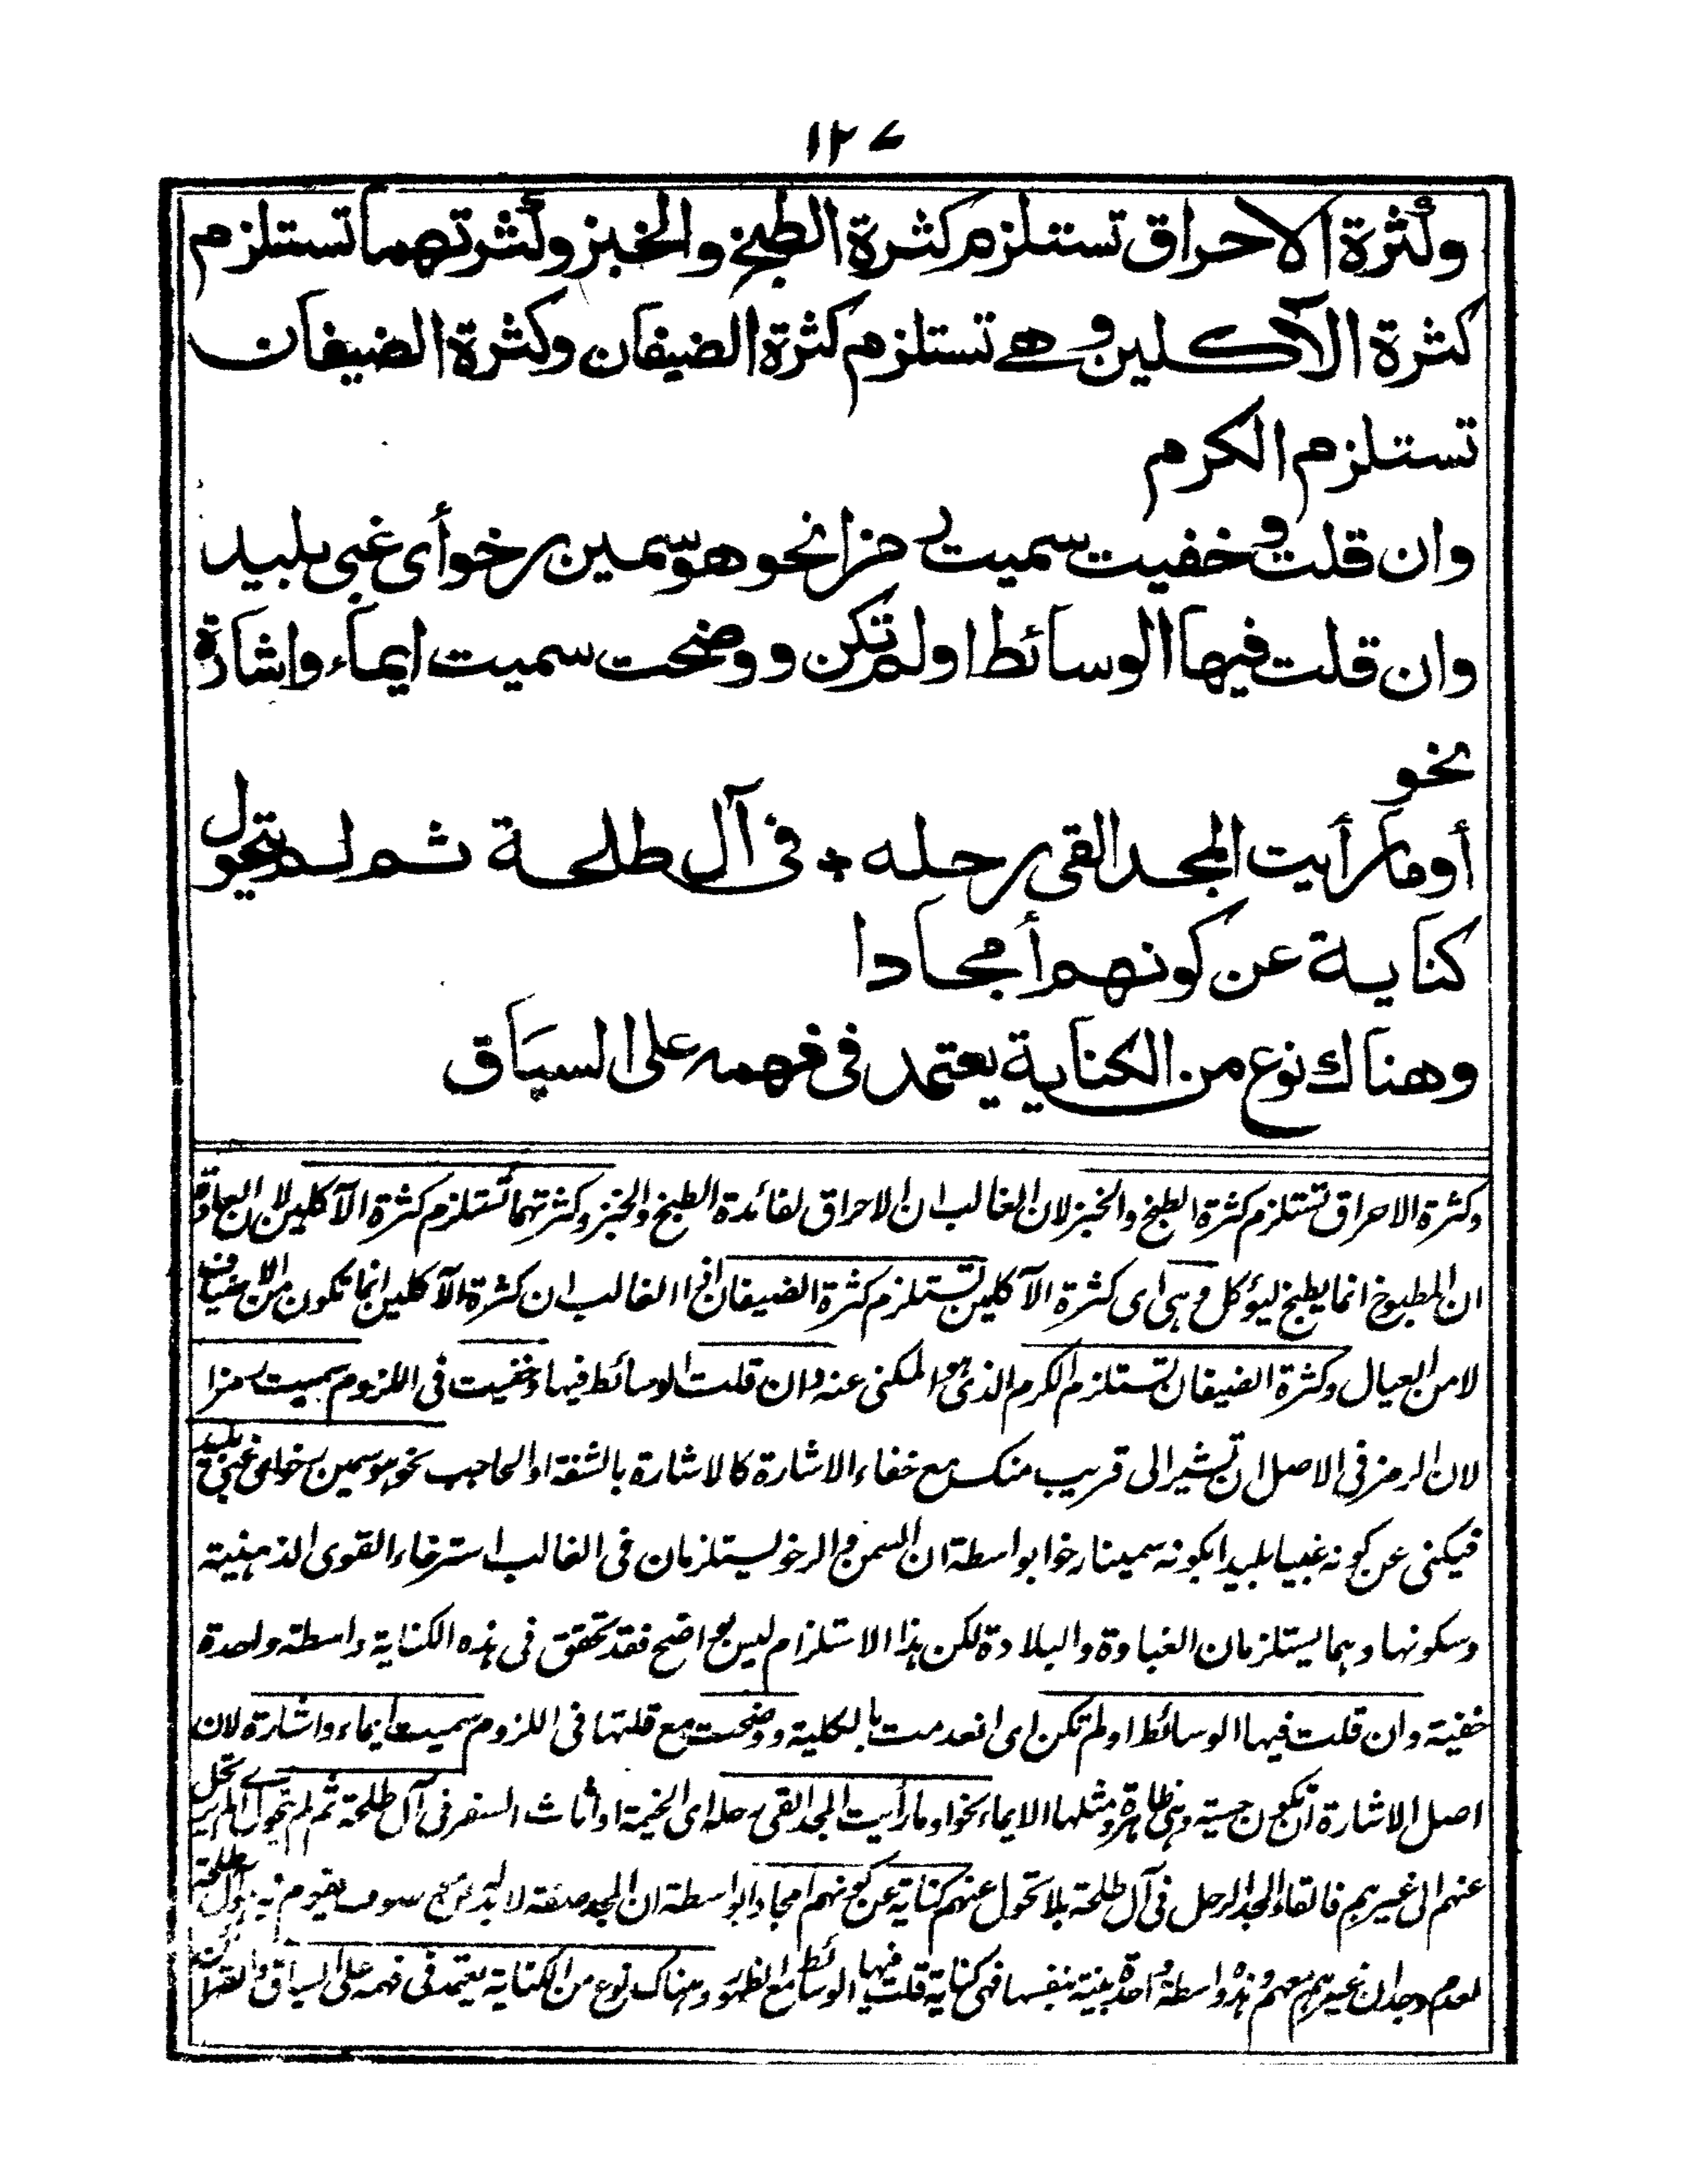 ١٢٧
وكثرة الاحراق تستلزم كثرة الطبخ والخبز وكثرتهما تستلزم
كثرة الآكلين وهي تستلزم كثرة الضيفان وكثرة الضيفان
تستلزم الكرم
وان قلت وخفيت سميت رمزا نحو هو سمين رخو أى غبى بليد
وان قلت فيها الوسائط اولم تكن ووضحت سميت ايماء واشارة
نحو
أو ما رأيت المجد القى رحله * فى آل طلحة ثم لم يتحول
كناية عن كونهم أمجادا
وهناك نوع من الكناية يعتمد فى فهمه على السياق
وكثرة الاحراق تستلزم كثرة الطبخ والخبز لان الغالب ان الاحراق لفائدة الطبخ والخبز وكثرتهما تستلزم كثرة الآكلين لان العادة
ان المطبوخ انما يطبخ ليؤكل وهى اى كثرة الآكلين تستلزم كثرة الضيفان اذ الغالب ان كثرة الآكلين انما تكون من الاضياف
لا من العيال وكثرة الضيفان تستلزم الكرم الذى هو المكنى عنه وان قلت الوسائط فيها وخفيت فى اللزوم سميت رمزا
لان الرمز فى الاصل ان تشير الى قريب منك مع خفاء الاشارة كالاشارة بالشفة او الحاجب نحو هو سمين رخو اى غبى بليد
فيكنى عن كونه غبيا بليدا بكونه سمينا رخوا بواسطة ان السمن والرخو يستلزمان فى الغالب استرخاء القوى الذهنية
وسكونها وهما يستلزمان الغباوة والبلادة لكن هذا الاستلزام ليس بواضح فقد تحقق فى هذه الكناية واسطة واحدة
خفية وان قلت فيها الوسائط او لم تكن اى انعدمت بالكلية ووضحت مع قلتها فى اللزوم سميت ايماء واشارة لان
اصل الاشارة ان تكون حسية وهى ظاهرة ومثلها الايماء نحو او ما رأيت المجد القى رحله اى الخيمة او أثاث السفر فى آل طلحة ثم لم يتحول اى لم يرتحل
عنهم الى غيرهم فالقاء المجد الرحل فى آل طلحة بلا تحول عنهم كناية عن كونهم امجادا بواسطة ان المجد صفة لا بد له من موصوف يقوم به وهو آل طلحة
لعدم وجدان غيرهم معهم وهذه واسطة واحدة بينة بنفسها فهى كناية قلت فيها الوسائط مع الظهور وهناك نوع من الكناية يعتمد فى فهمه على السياق والقرائن